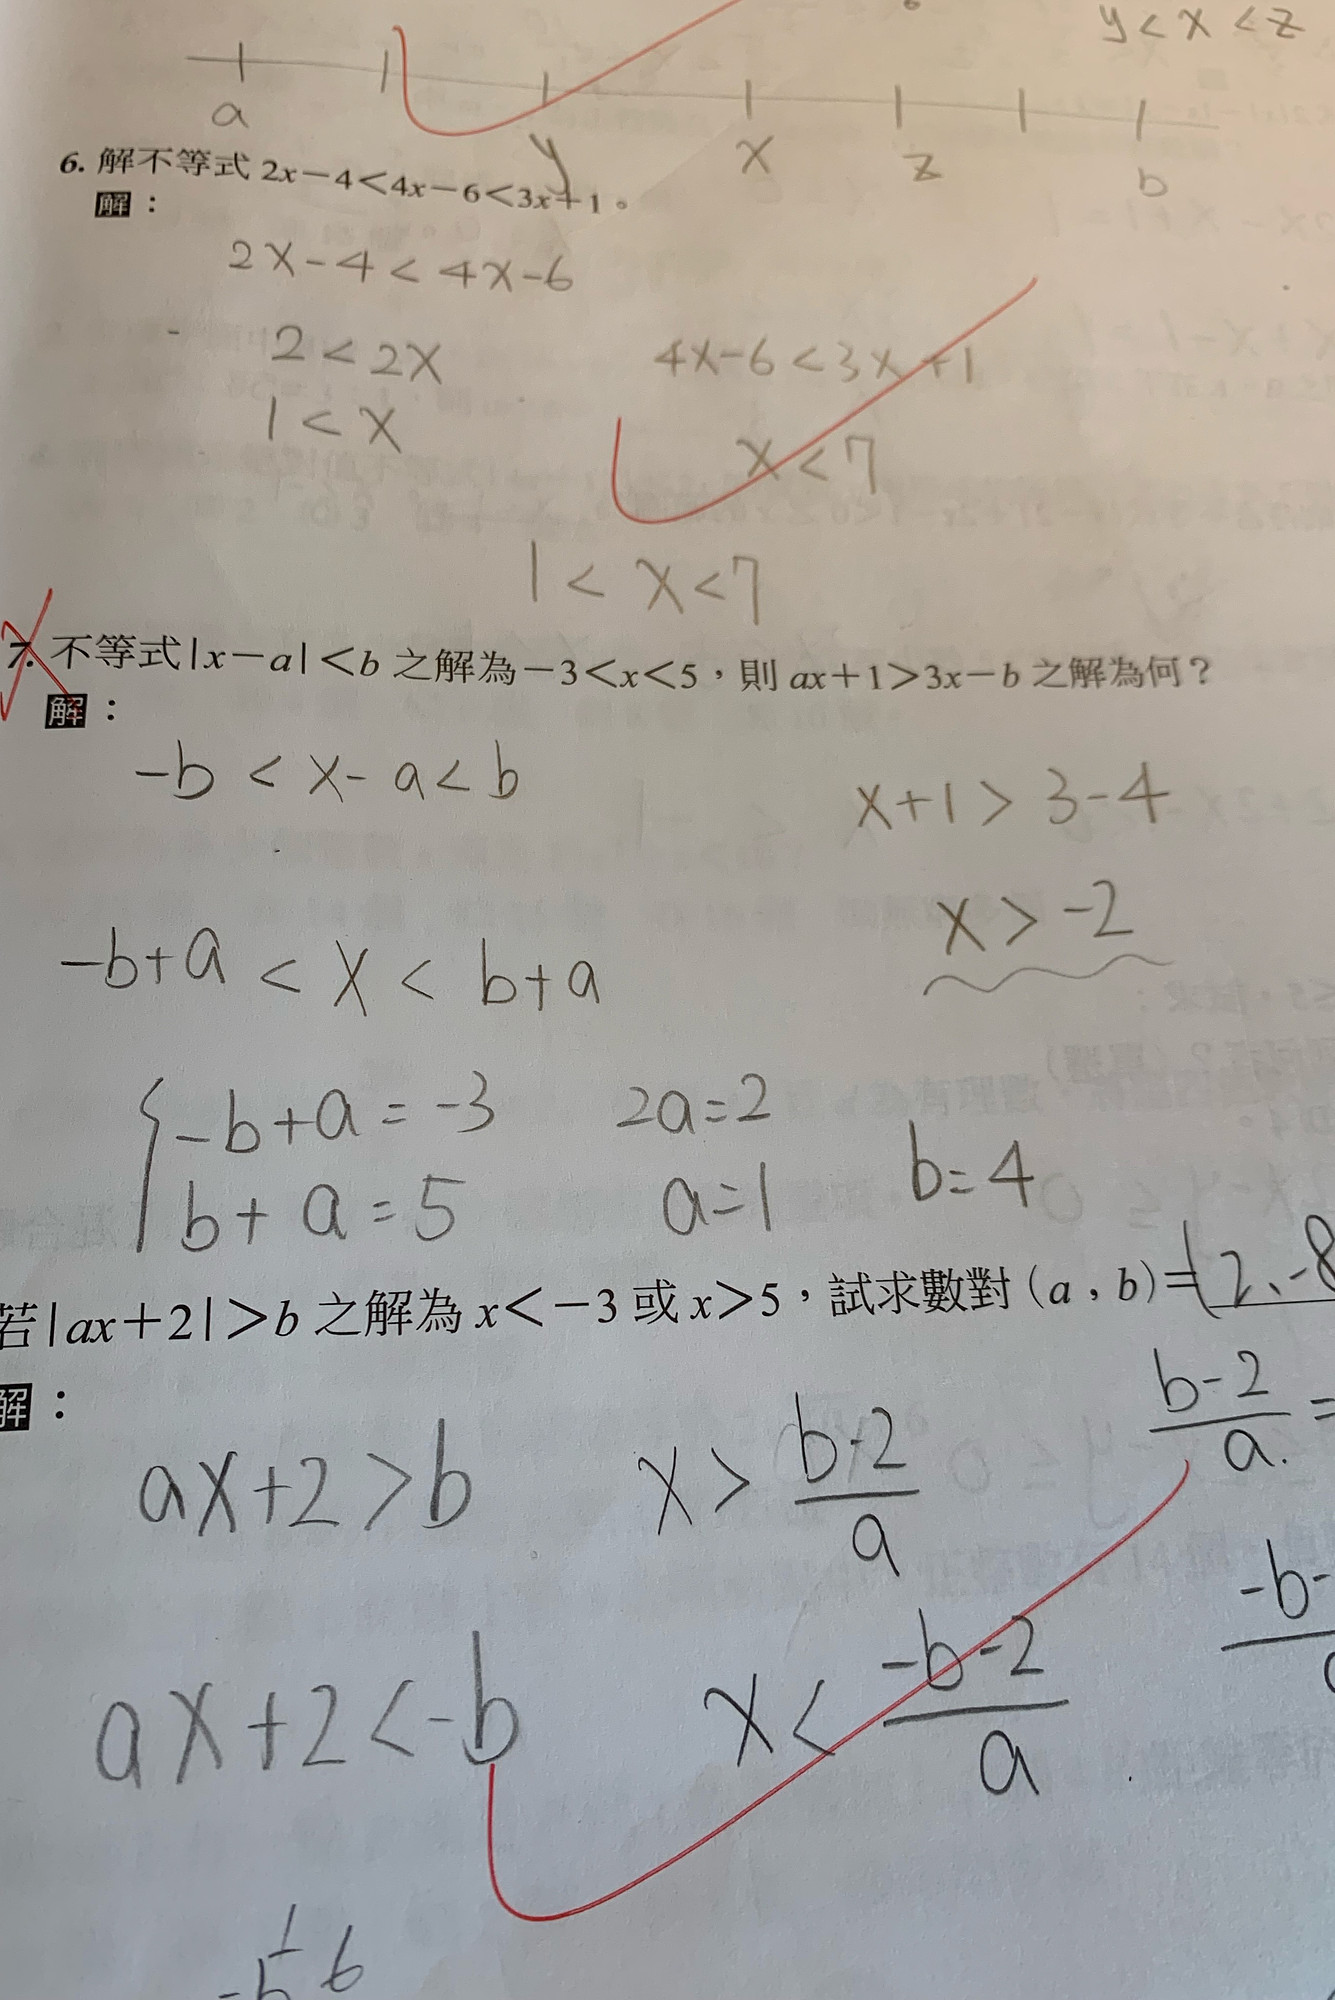 y<x<z
a y x z b
6. 解不等式 2x－4<4x－6<3x＋1。
解：
2x-4<4x-6
2<2x
4x-6<3x+1
1<x
x<7
1<x<7
7. 不等式|x－a|<b 之解為－3<x<5，則 ax＋1>3x－b 之解為何？
解：
-b<x-a<b
x+1>3-4
x>-2
-b+a<x<b+a
-b+a=-3 2a=2
b+a=5 a=1 b=4
若|ax＋2|>b 之解為 x<－3 或 x>5，試求數對（a，b）＝(2、-8
解：
ax+2>b x> b-2/a
b-2/a =
ax+2<-b x< -b-2/a